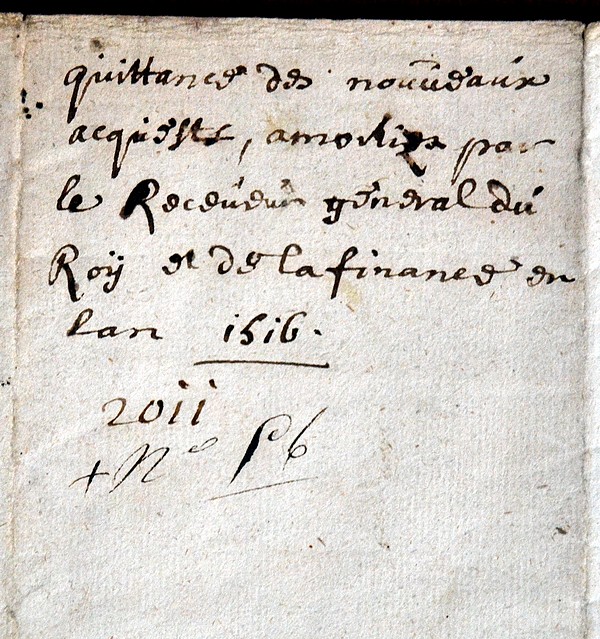 quittance des nouveaux
acquests, amortis par
le Receveur general du
Roÿ et de la finance en
lan 1516.
2011
+ Ne